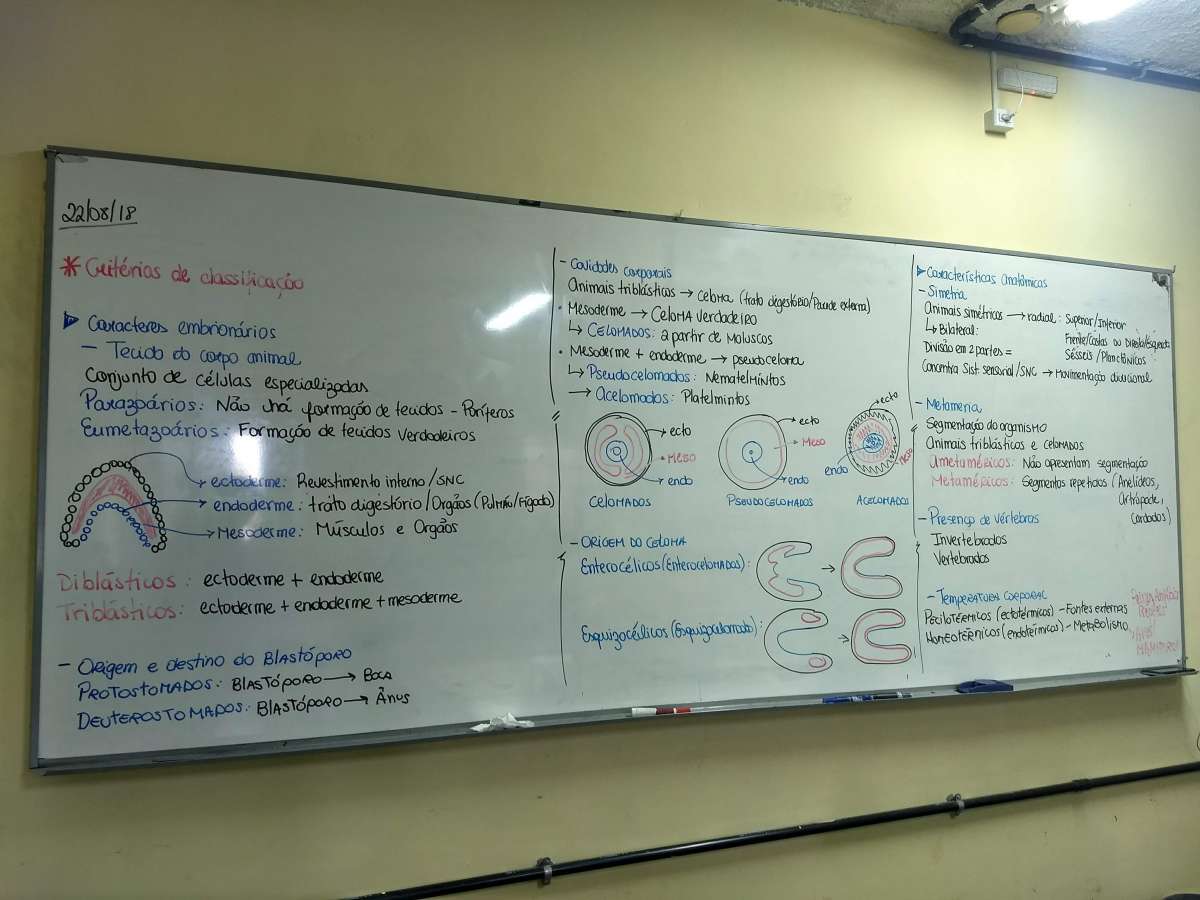 22/08/18
* Critérios de classificação
Caracteres embrionários
- Tecido do corpo animal
Conjunto de células especializadas
Parazoários: Não há formação de tecidos - Poríferos
Eumetazoários: Formação de tecidos verdadeiros
ectoderme: Revestimento interno/SNC
endoderme: trato digestório/Orgãos (Pulmão/Fígado)
Mesoderme: Músculos e Orgãos
Diblásticos: ectoderme + endoderme
Triblásticos: ectoderme + endoderme + mesoderme
- Origem e destino do Blastóporo
Protostomados: Blastóporo → Boca
Deuterostomados: Blastóporo → Ânus
- Cavidades corporais
Animais triblásticos → Celoma (trato digestório/Parede externa)
• Mesoderme → Celoma Verdadeiro
↳ Celomados: a partir de Moluscos
• Mesoderme + endoderme → pseudoceloma
↳ Pseudocelomados: Nematelmintos
→ Acelomados: Platelmintos
ecto
Meso
endo
Celomados
ecto
Meso
endo
Pseudocelomados
ecto
Meso
endo
Acelomados
- Origem do Celoma
Enterocélicos (Enterocelomados):
Esquizocélicos (Esquizocelomado):
Características Anatômicas
- Simetria
Animais simétricos → radial: Superior/Inferior
↳ Bilateral: Frente/Costas ou Direita/Esquerda
Divisão em 2 partes = Sésseis/Planctônicos
Concentra Sist. sensorial/SNC → Movimentação direcional
- Metameria
Segmentação do organismo
Animais triblásticos e celomados
Ametaméricos: Não apresentam segmentação
Metaméricos: Segmentos repetidos (Anelídeos,
Artrópode,
Cordados)
- Presença de vértebras
Invertebrados
Vertebrados
- Temperatura corporal
Pecilotérmicos (ectotérmicos) - Fontes externas
Homeotérmicos (endotérmicos) - Metabolismo